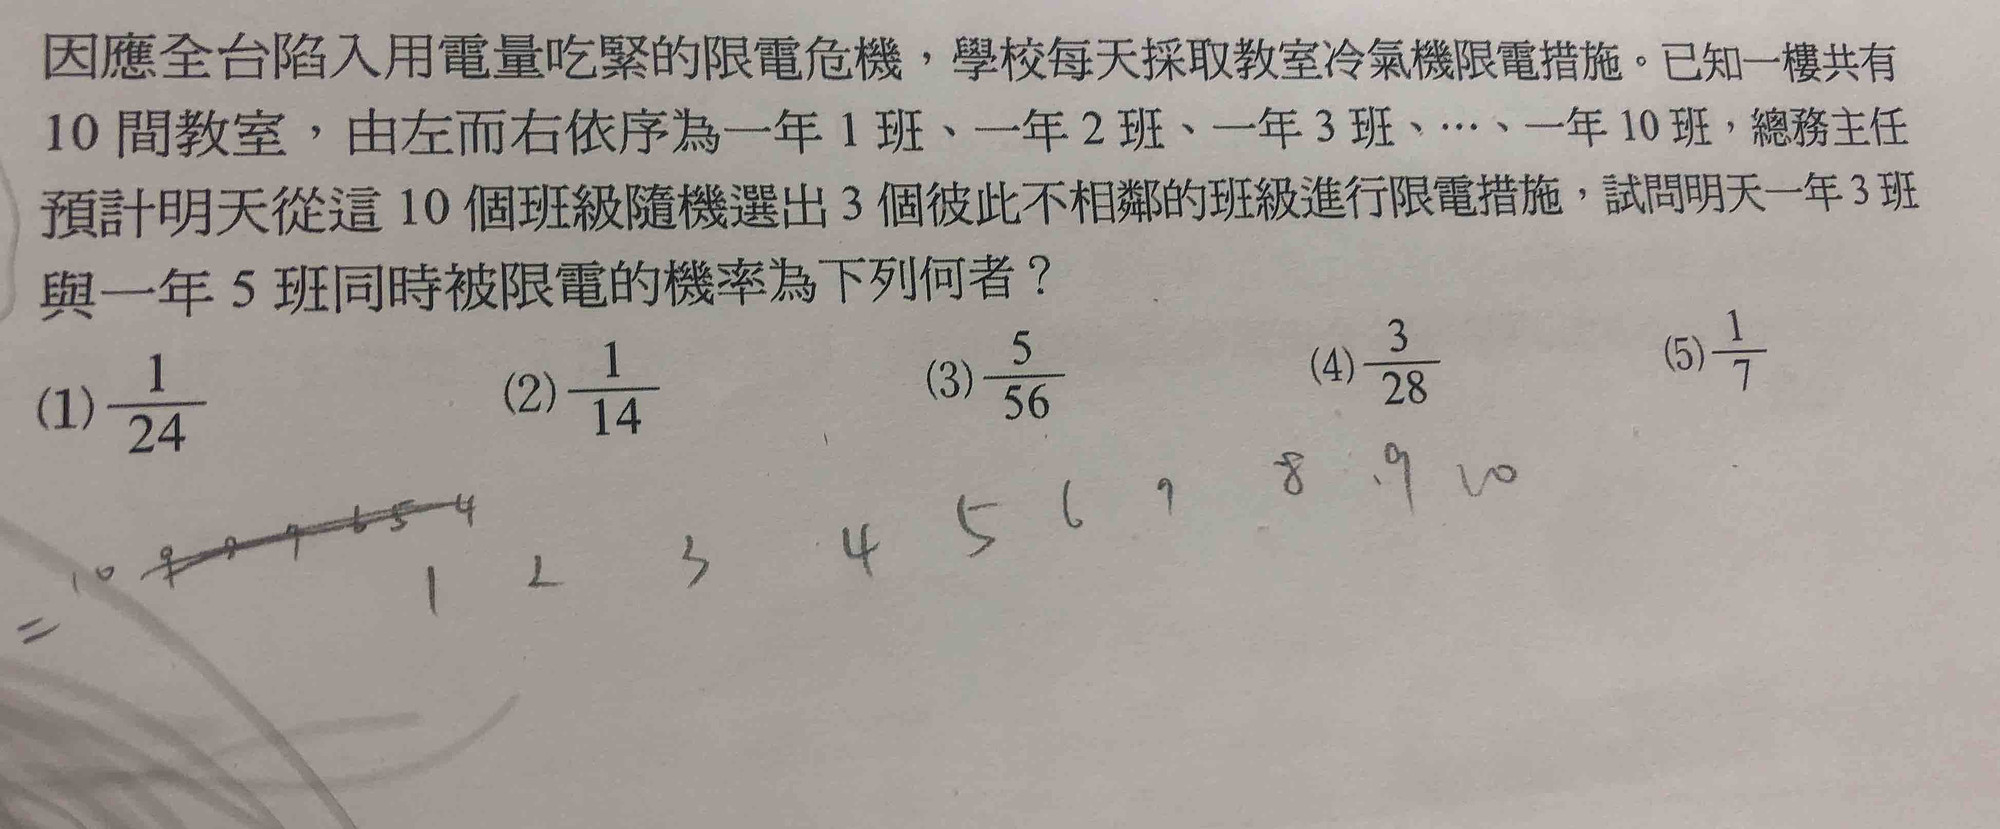 因應全台陷入用電量吃緊的限電危機，學校每天採取教室冷氣機限電措施。已知一樓共有
10 間教室，由左而右依序為一年 1 班、一年 2 班、一年 3 班、…、一年 10 班，總務主任
預計明天從這 10 個班級隨機選出 3 個彼此不相鄰的班級進行限電措施，試問明天一年 3 班
與一年 5 班同時被限電的機率為下列何者？
(1) 1/24 (2) 1/14 (3) 5/56 (4) 3/28 (5) 1/7
10 9 8 7 6 5 4
1 2 3 4 5 6 7 8 9 10
=